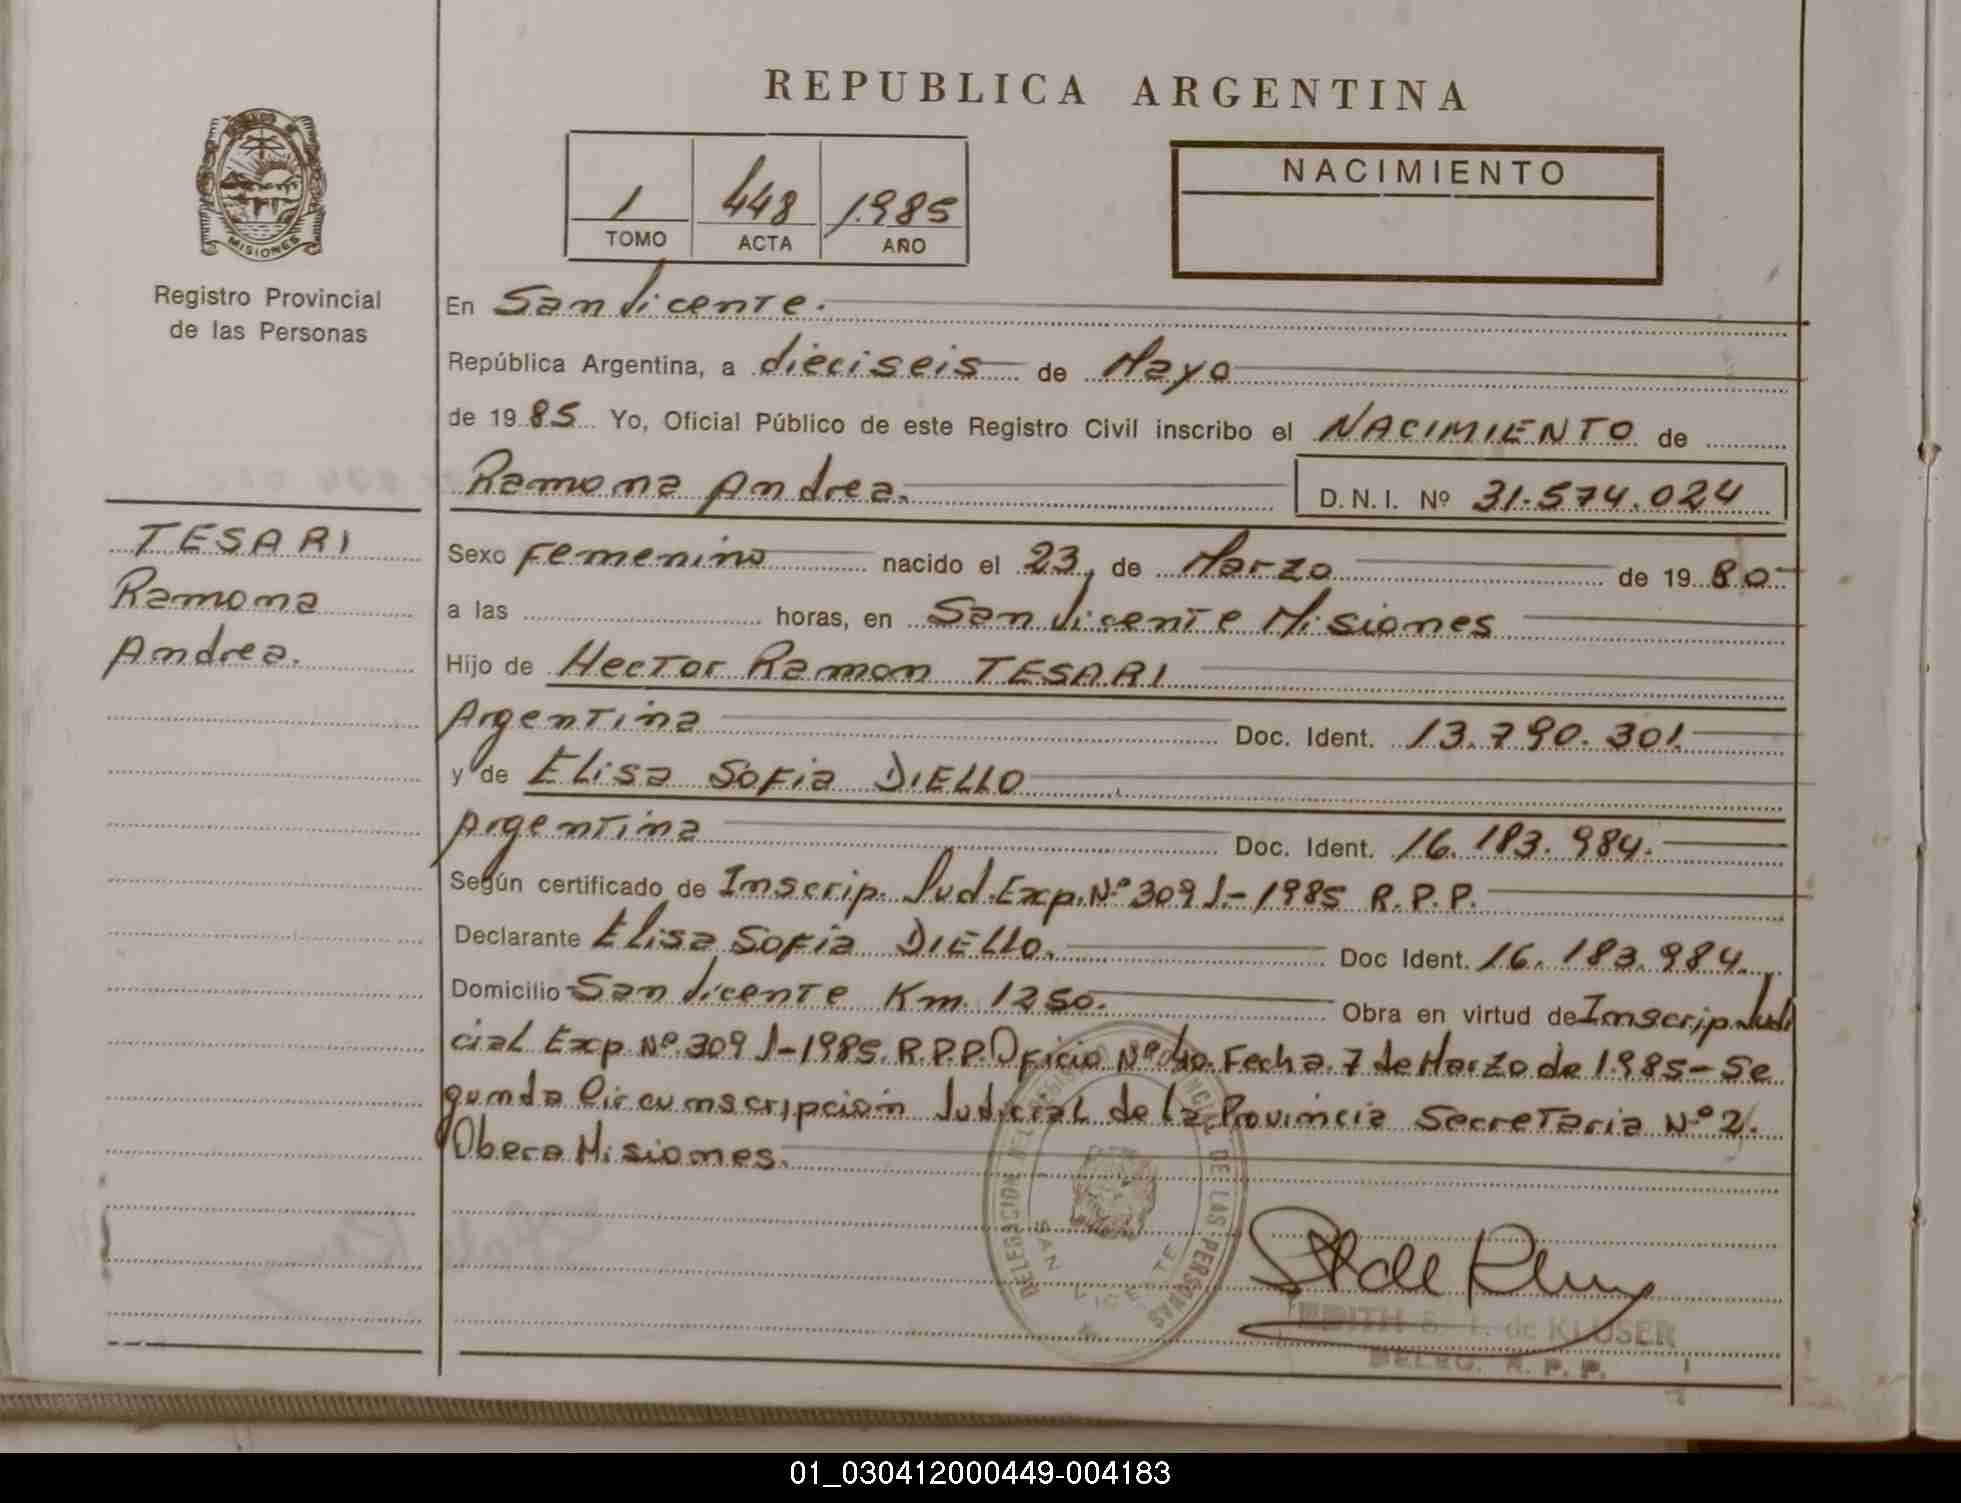 REPUBLICA ARGENTINA
MISIONES
Registro Provincial
de las Personas
1 448 1985
TOMO ACTA AÑO
NACIMIENTO
En San Vicente.
República Argentina, a dieciseis de Mayo
de 1985 Yo, Oficial Público de este Registro Civil inscribo el NACIMIENTO de
Ramona Andrea. D.N.I. Nº 31.574.024
TESARI
Ramona
Andrea.
Sexo Femenino nacido el 23, de Marzo de 1980
a las horas, en San Vicente Misiones
Hijo de Hector Ramon TESARI
Argentina Doc. Ident. 13.790.301.
y de Elisa Sofia DIELLO
Argentina Doc. Ident. 16.183.984.
Según certificado de Inscrip. Jud. Exp. Nº 309 J-1985 R.P.P.
Declarante Elisa Sofia DIELLO. Doc Ident. 16.183.984.
Domicilio San Vicente Km. 1250. Obra en virtud de Inscrip. Judi
cial Exp Nº 309 J-1985. R.P.P. Oficio Nº 40. Fecha 7 de Marzo de 1985-Se
gunda Circunscripcion Judicial de la Provincia Secretaria Nº 2.
Obera Misiones.
DELEGACION DEL REGISTRO PROVINCIAL DE LAS PERSONAS
SAN VICENTE
EDITH de KLUSER
DELEG. R. P. P.
01_030412000449-004183